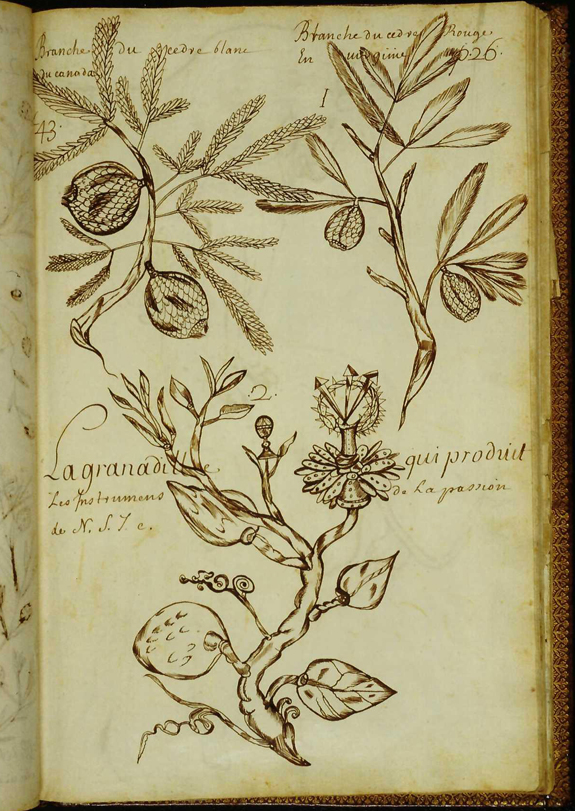 Branche du cedre blanc
du canada
43.
Branche du cedre Rouge
En virginie 1626.
1
2.
La granadille qui produit
Les Instrumens de La passion
de N. S. J. c.